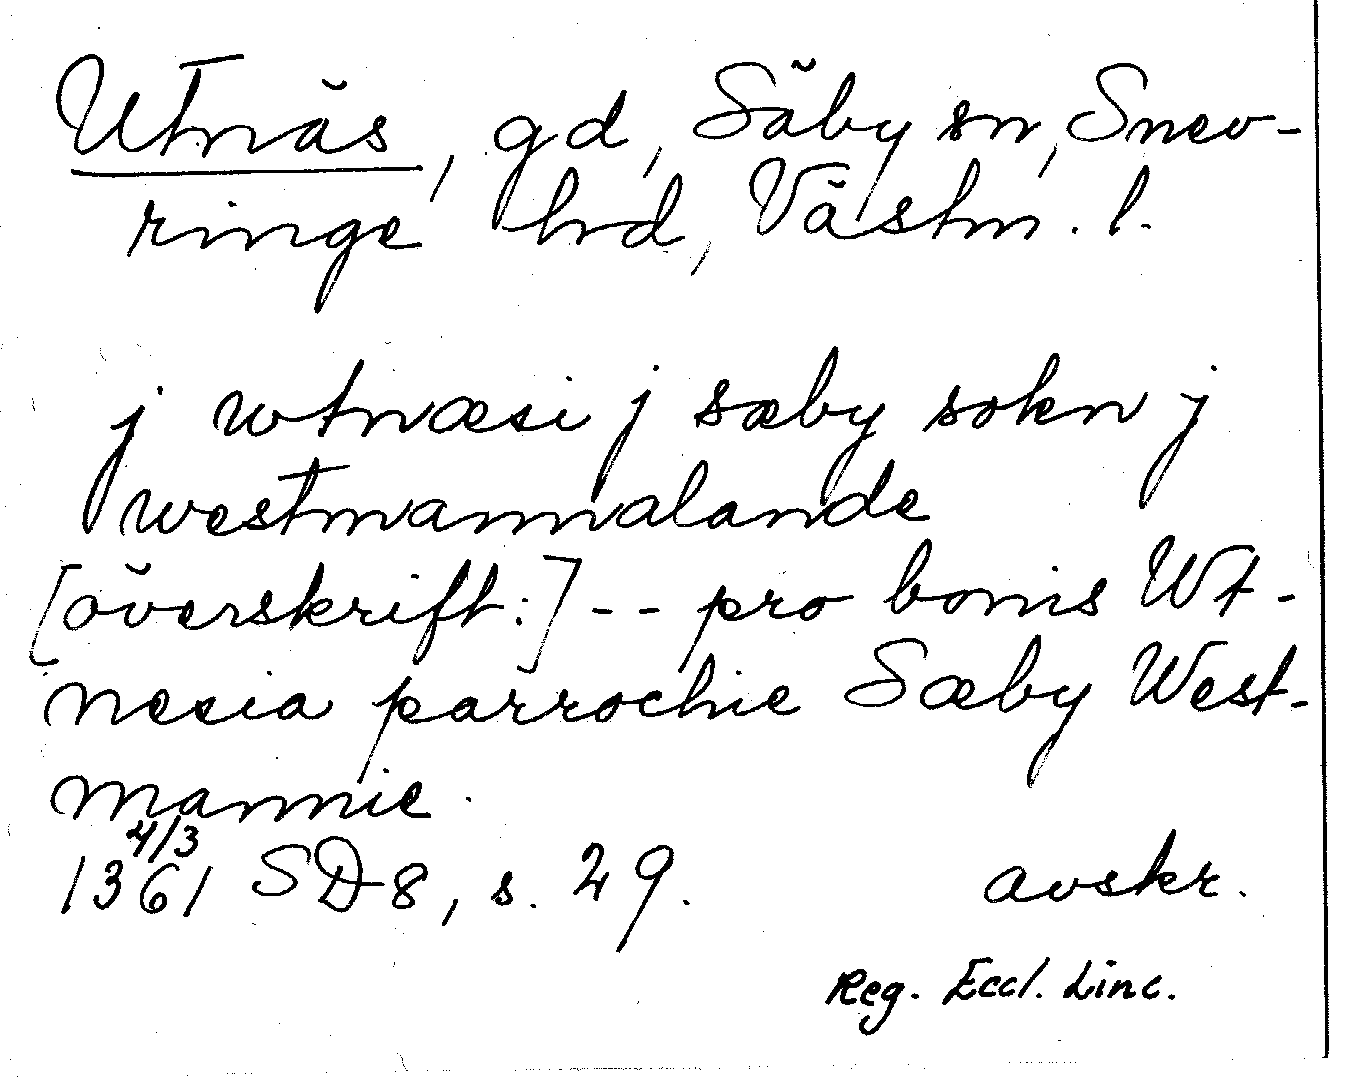 Utnäs, gd, Säby sn, Snev-
ringe hd, Västm. l.
j wtnæsi j sæby sokn j
westmannalande
[överskrift:] -- pro bonis Wt-
nesia parrochie Sæby West-
mannie.
4/3
1361 SD 8, s. 29. avskr.
Reg. Eccl. Linc.